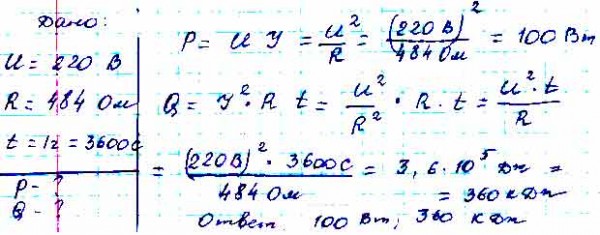 Дано:
U = 220 В
R = 484 Ом
t = 1г = 3600 С
P - ?
Q - ?
P = U У = U²/R = (220 В)²/484 Ом = 100 Вт
Q = У² · R t = U²/R² · R · t = U² · t/R
= (220 В)² · 3600 С/484 Ом = 3,6 · 10⁵ Дж =
= 360 кДж
Ответ 100 Вт; 360 кДж